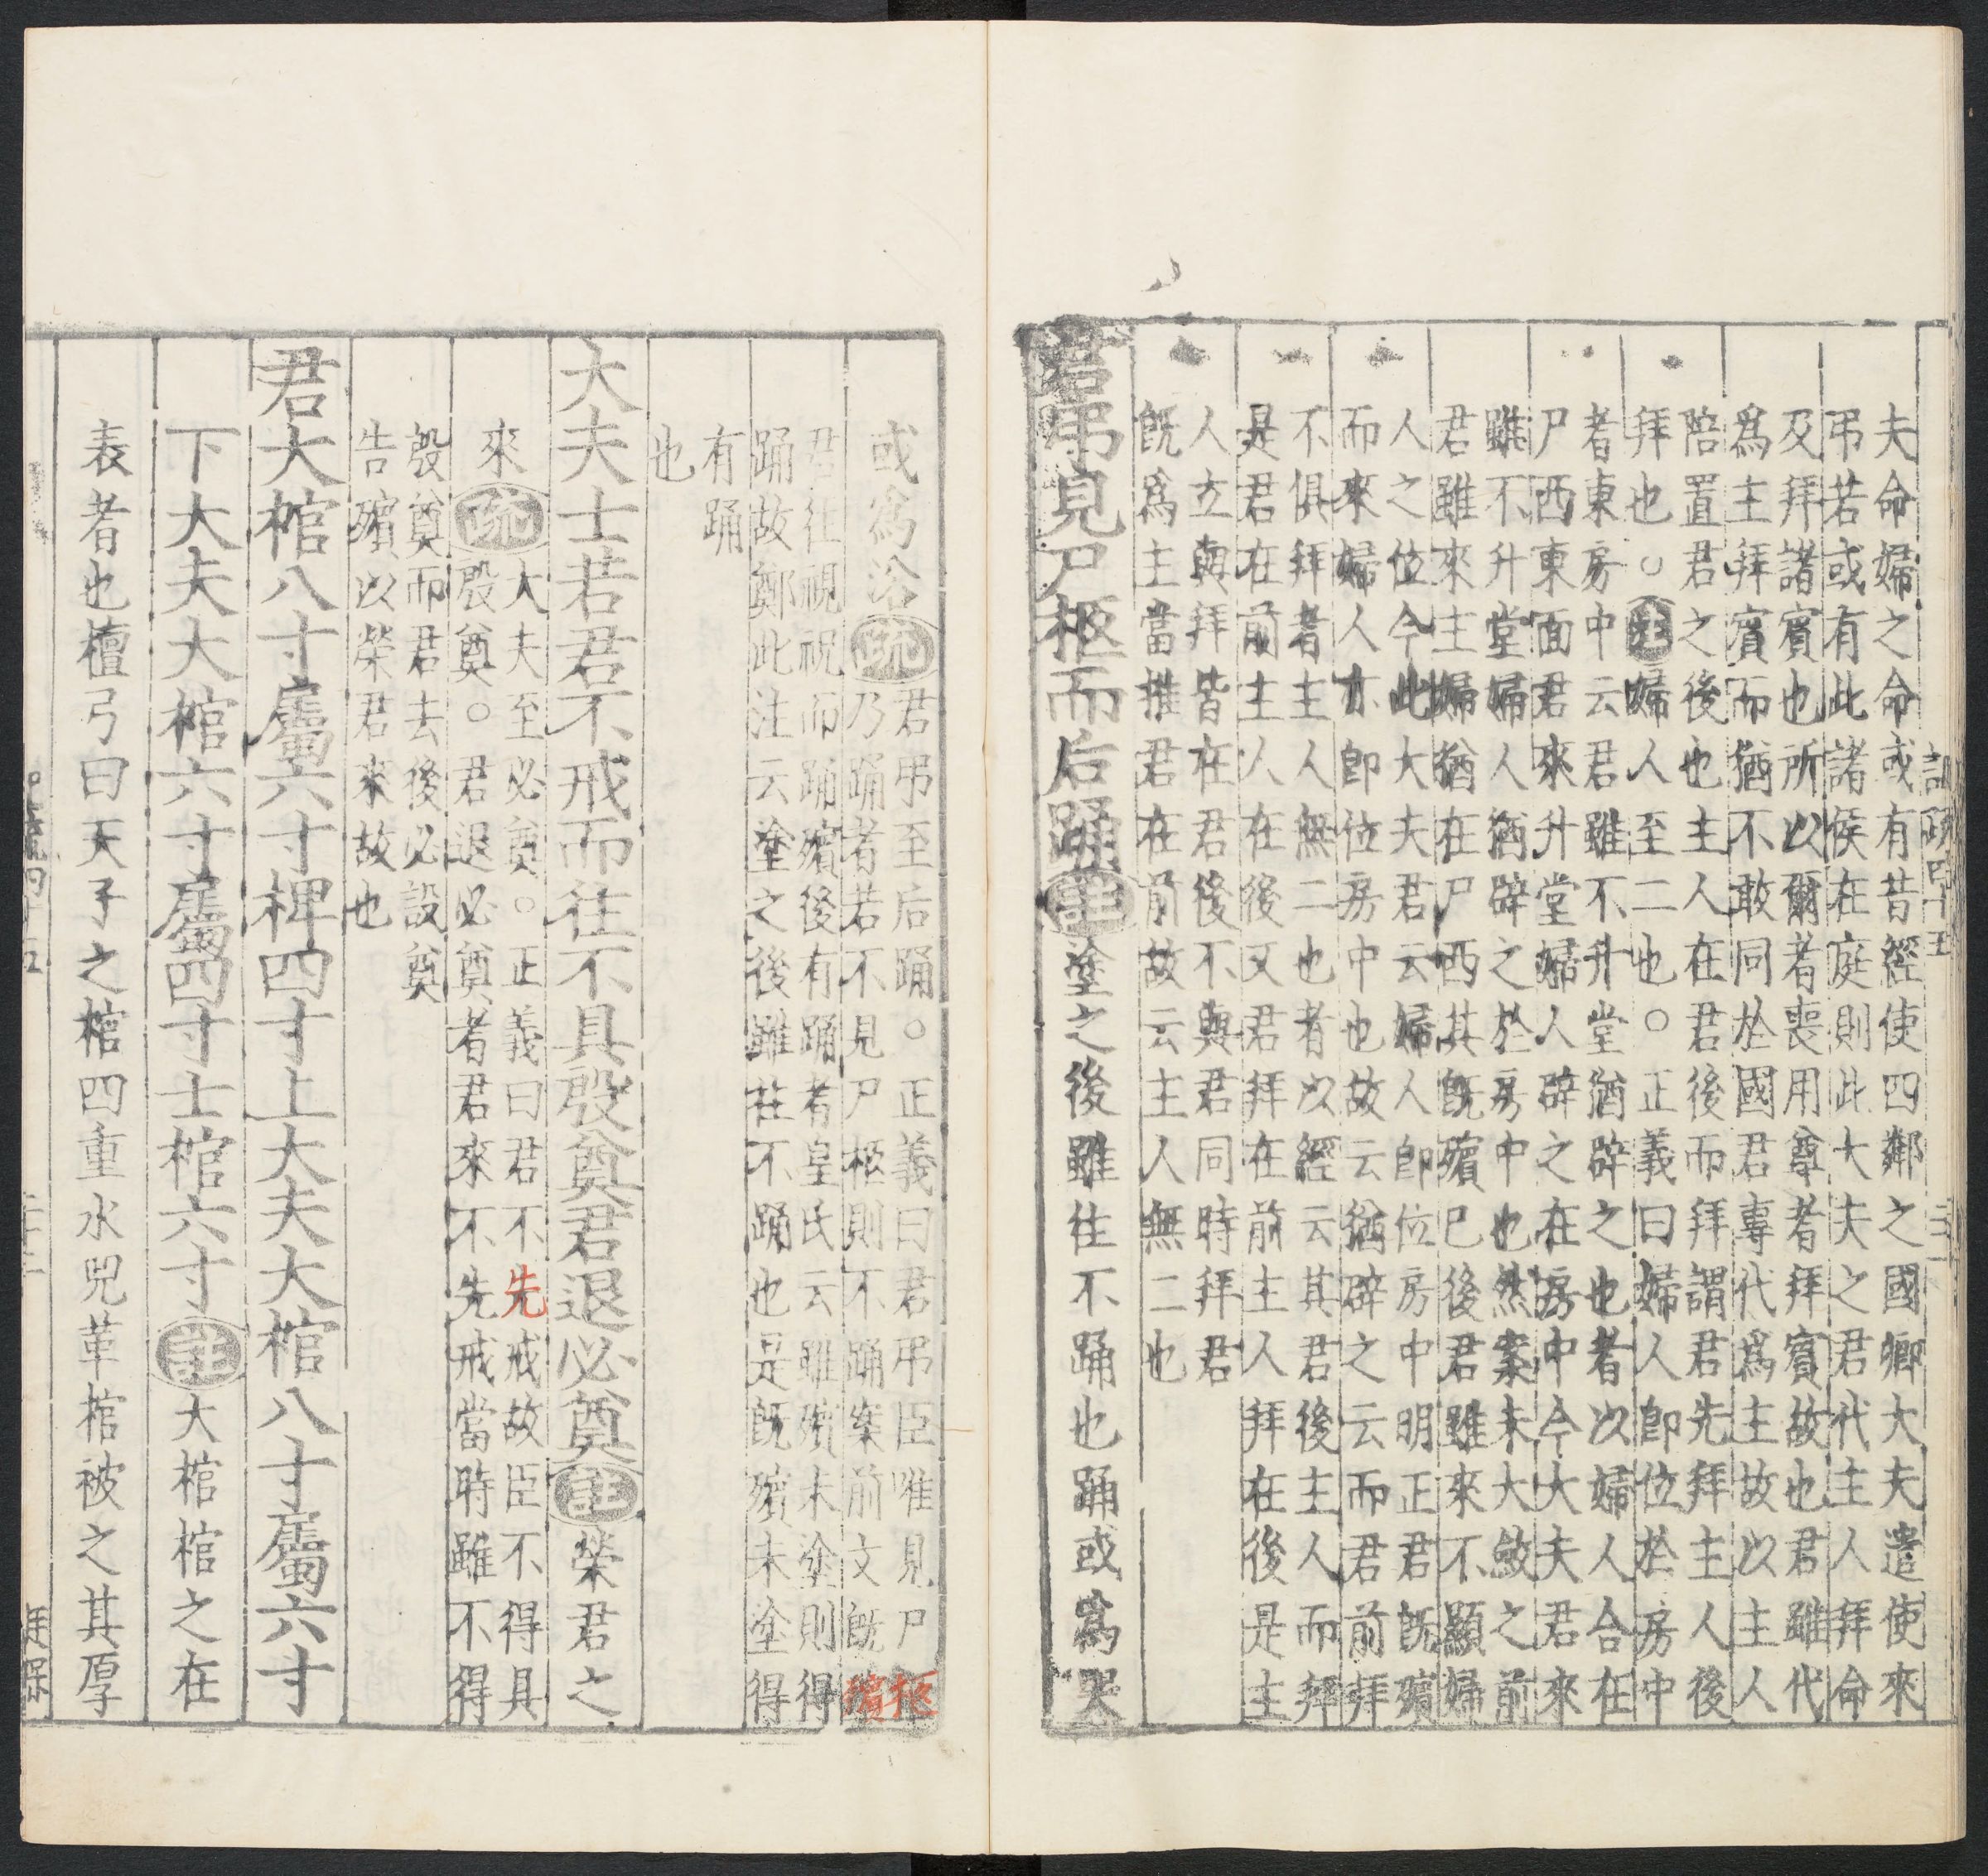 夫命婦之命或有昔經使四鄰之國卿大夫遣使來
弔若或有此諸侯在庭則此大夫之君代主人拜命
及拜諸賓也所以爾者喪用尊者拜賓故也君雖代
爲主拜賓而猶不敢同於國君專代爲主故以主人
陪置君之後也主人在君後而拜謂君先拜主人後
拜也○注婦人至二也○正義曰婦人卽位於房中
者東房中云君雖不升堂猶辟之也者以婦人合在
尸西東面君來升堂婦人辟之在房中今大夫君來
雖不升堂婦人猶辟之於房中也然案未大斂之前
君雖來主婦猶在尸西其旣殯已後君雖來不顯婦
人之位今此大夫君云婦人卽位房中明正君旣殯
而來婦人亦卽位房中也故云猶辟之云而君前拜
不俱拜者主人無二也者以經云其君後主人而拜
是君在前主人在後又君拜在前主人拜在後是主
人立與拜皆在君後不與君同時拜君
旣爲主當推君在前故云主人無二也
君弔見尸柩而后踊注塗之後雖往不踊也踊或爲哭
記疏四十五
或爲浴疏君弔至后踊○正義曰君弔臣唯見尸柩
乃踊者若不見尸柩則不踊案前文旣殯
君往視祝而踊殯後有踊者皇氏云雖殯未塗則得
踊故鄭此注云塗之後雖往不踊也是旣殯未塗得
有踊
也
大夫士若君不戒而往不具殷奠君退必奠注榮君之
來疏大夫至必奠○正義曰君不先戒故臣不得具
殷奠○君退必奠者君來不先戒當時雖不得
殷奠而君去後必設奠
告殯以榮君來故也
君大棺八寸屬六寸椑四寸上大夫大棺八寸屬六寸
下大夫大棺六寸屬四寸士棺六寸注大棺棺之在
表者也檀弓曰天子之棺四重水兕革棺被之其厚